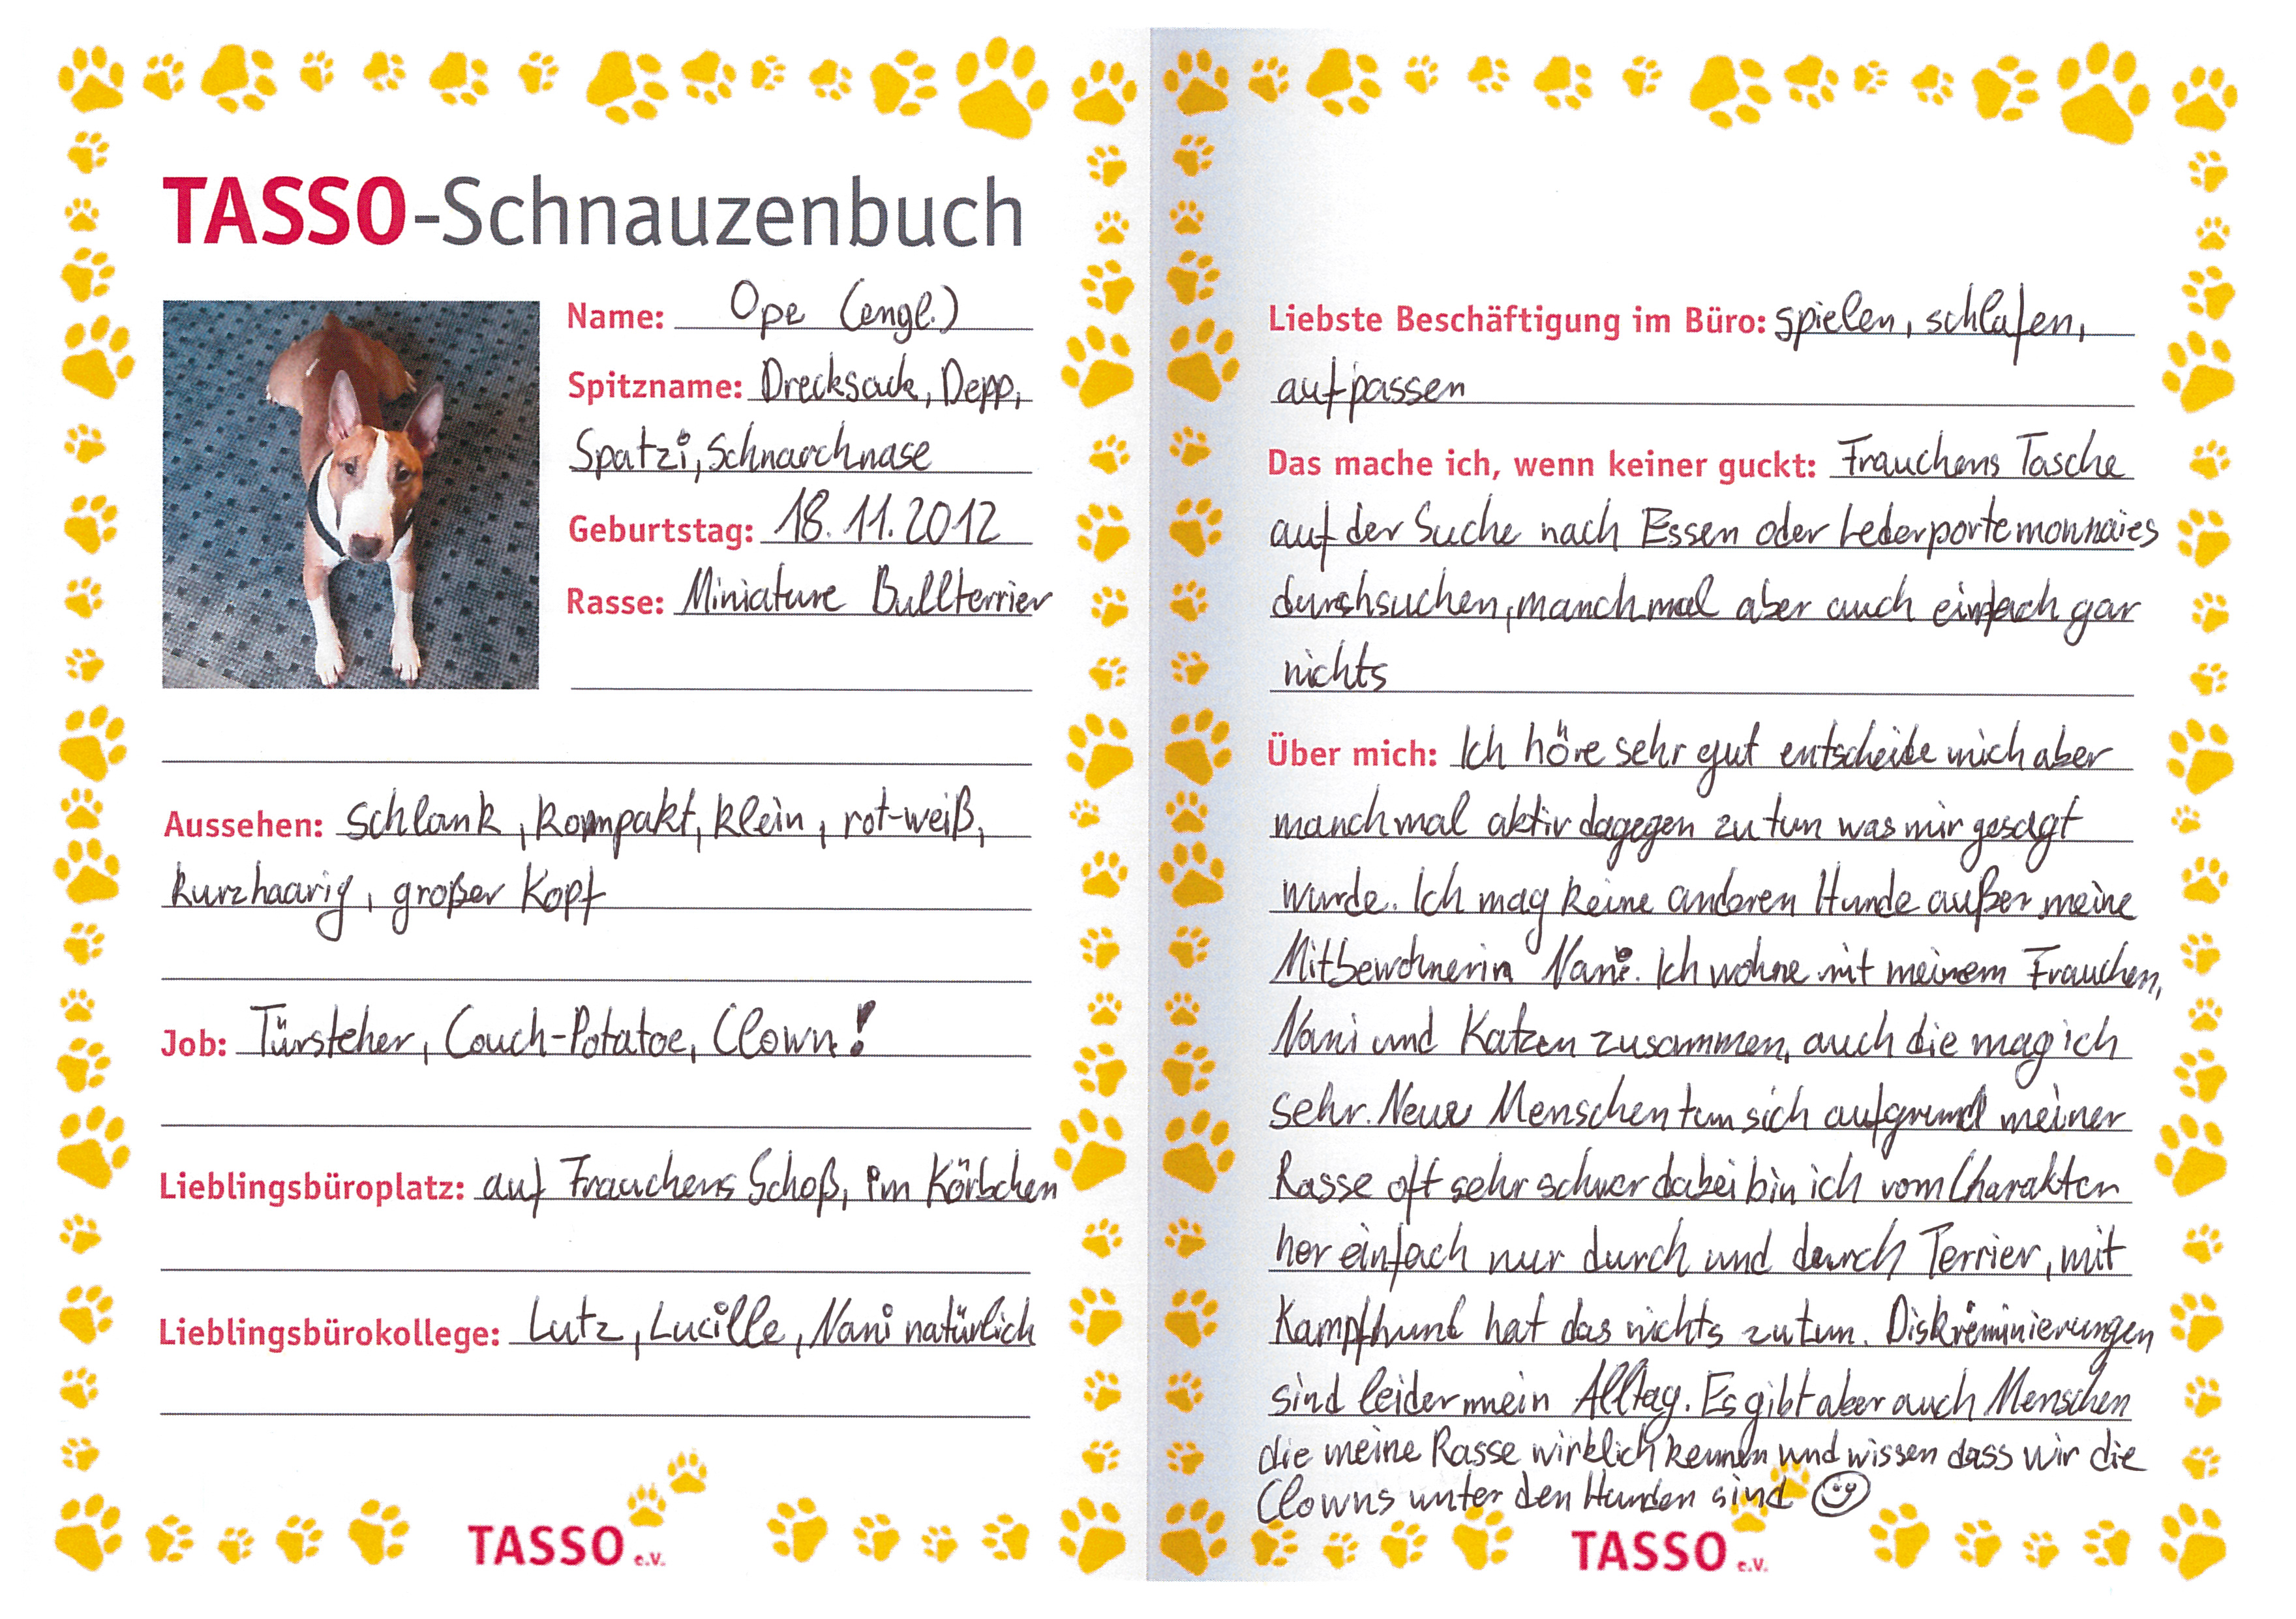 TASSO-Schnauzenbuch
Name: Ope (engl.)
Spitzname: Drecksack, Depp,
Spatzi, Schnarchnase
Geburtstag: 18.11.2012
Rasse: Miniature Bullterrier
Aussehen: schlank, kompakt, klein, rot-weiß,
kurzhaarig, großer Kopf
Job: Türsteher, Couch-Potatoe, Clown!
Lieblingsbüroplatz: auf Frauchens Schoß, im Körbchen
Lieblingsbürokollege: Lutz, Lucille, Nani natürlich
TASSO e.V.
Liebste Beschäftigung im Büro: spielen, schlafen,
aufpassen
Das mache ich, wenn keiner guckt: Frauchens Tasche
auf der Suche nach Essen oder Lederportemonnaies
durchsuchen, manchmal aber auch einfach gar
nichts
Über mich: Ich höre sehr gut entscheide mich aber
manchmal aktiv dagegen zu tun was mir gesagt
wurde. Ich mag keine anderen Hunde außer meine
Mitbewohnerin Nani. Ich wohne mit meinem Frauchen,
Nani und Katzen zusammen, auch die mag ich
sehr. Neue Menschen tun sich aufgrund meiner
Rasse oft sehr schwer dabei bin ich vom Charakter
her einfach nur durch und durch Terrier, mit
Kampfhund hat das nichts zu tun. Diskriminierungen
sind leider mein Alltag. Es gibt aber auch Menschen
die meine Rasse wirklich kennen und wissen dass wir die
Clowns unter den Hunden sind ☺
TASSO e.V.